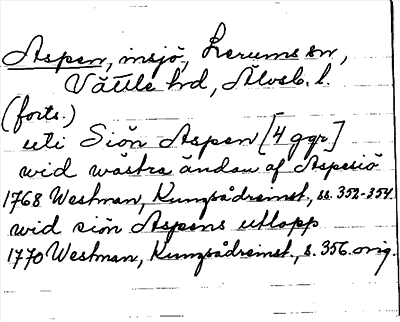 Aspen, insjö, Lerums sn,
Vättle hd, Älvsb. l.
(forts.)
uti Siön Aspen [4 ggr]
wid wästra ändan af Aspesiö
1768 Westman, Kungsådreinst., ss. 352-354.
wid siön Aspens utlopp
1770 Westman, Kungsådreinst., s. 356. orig.